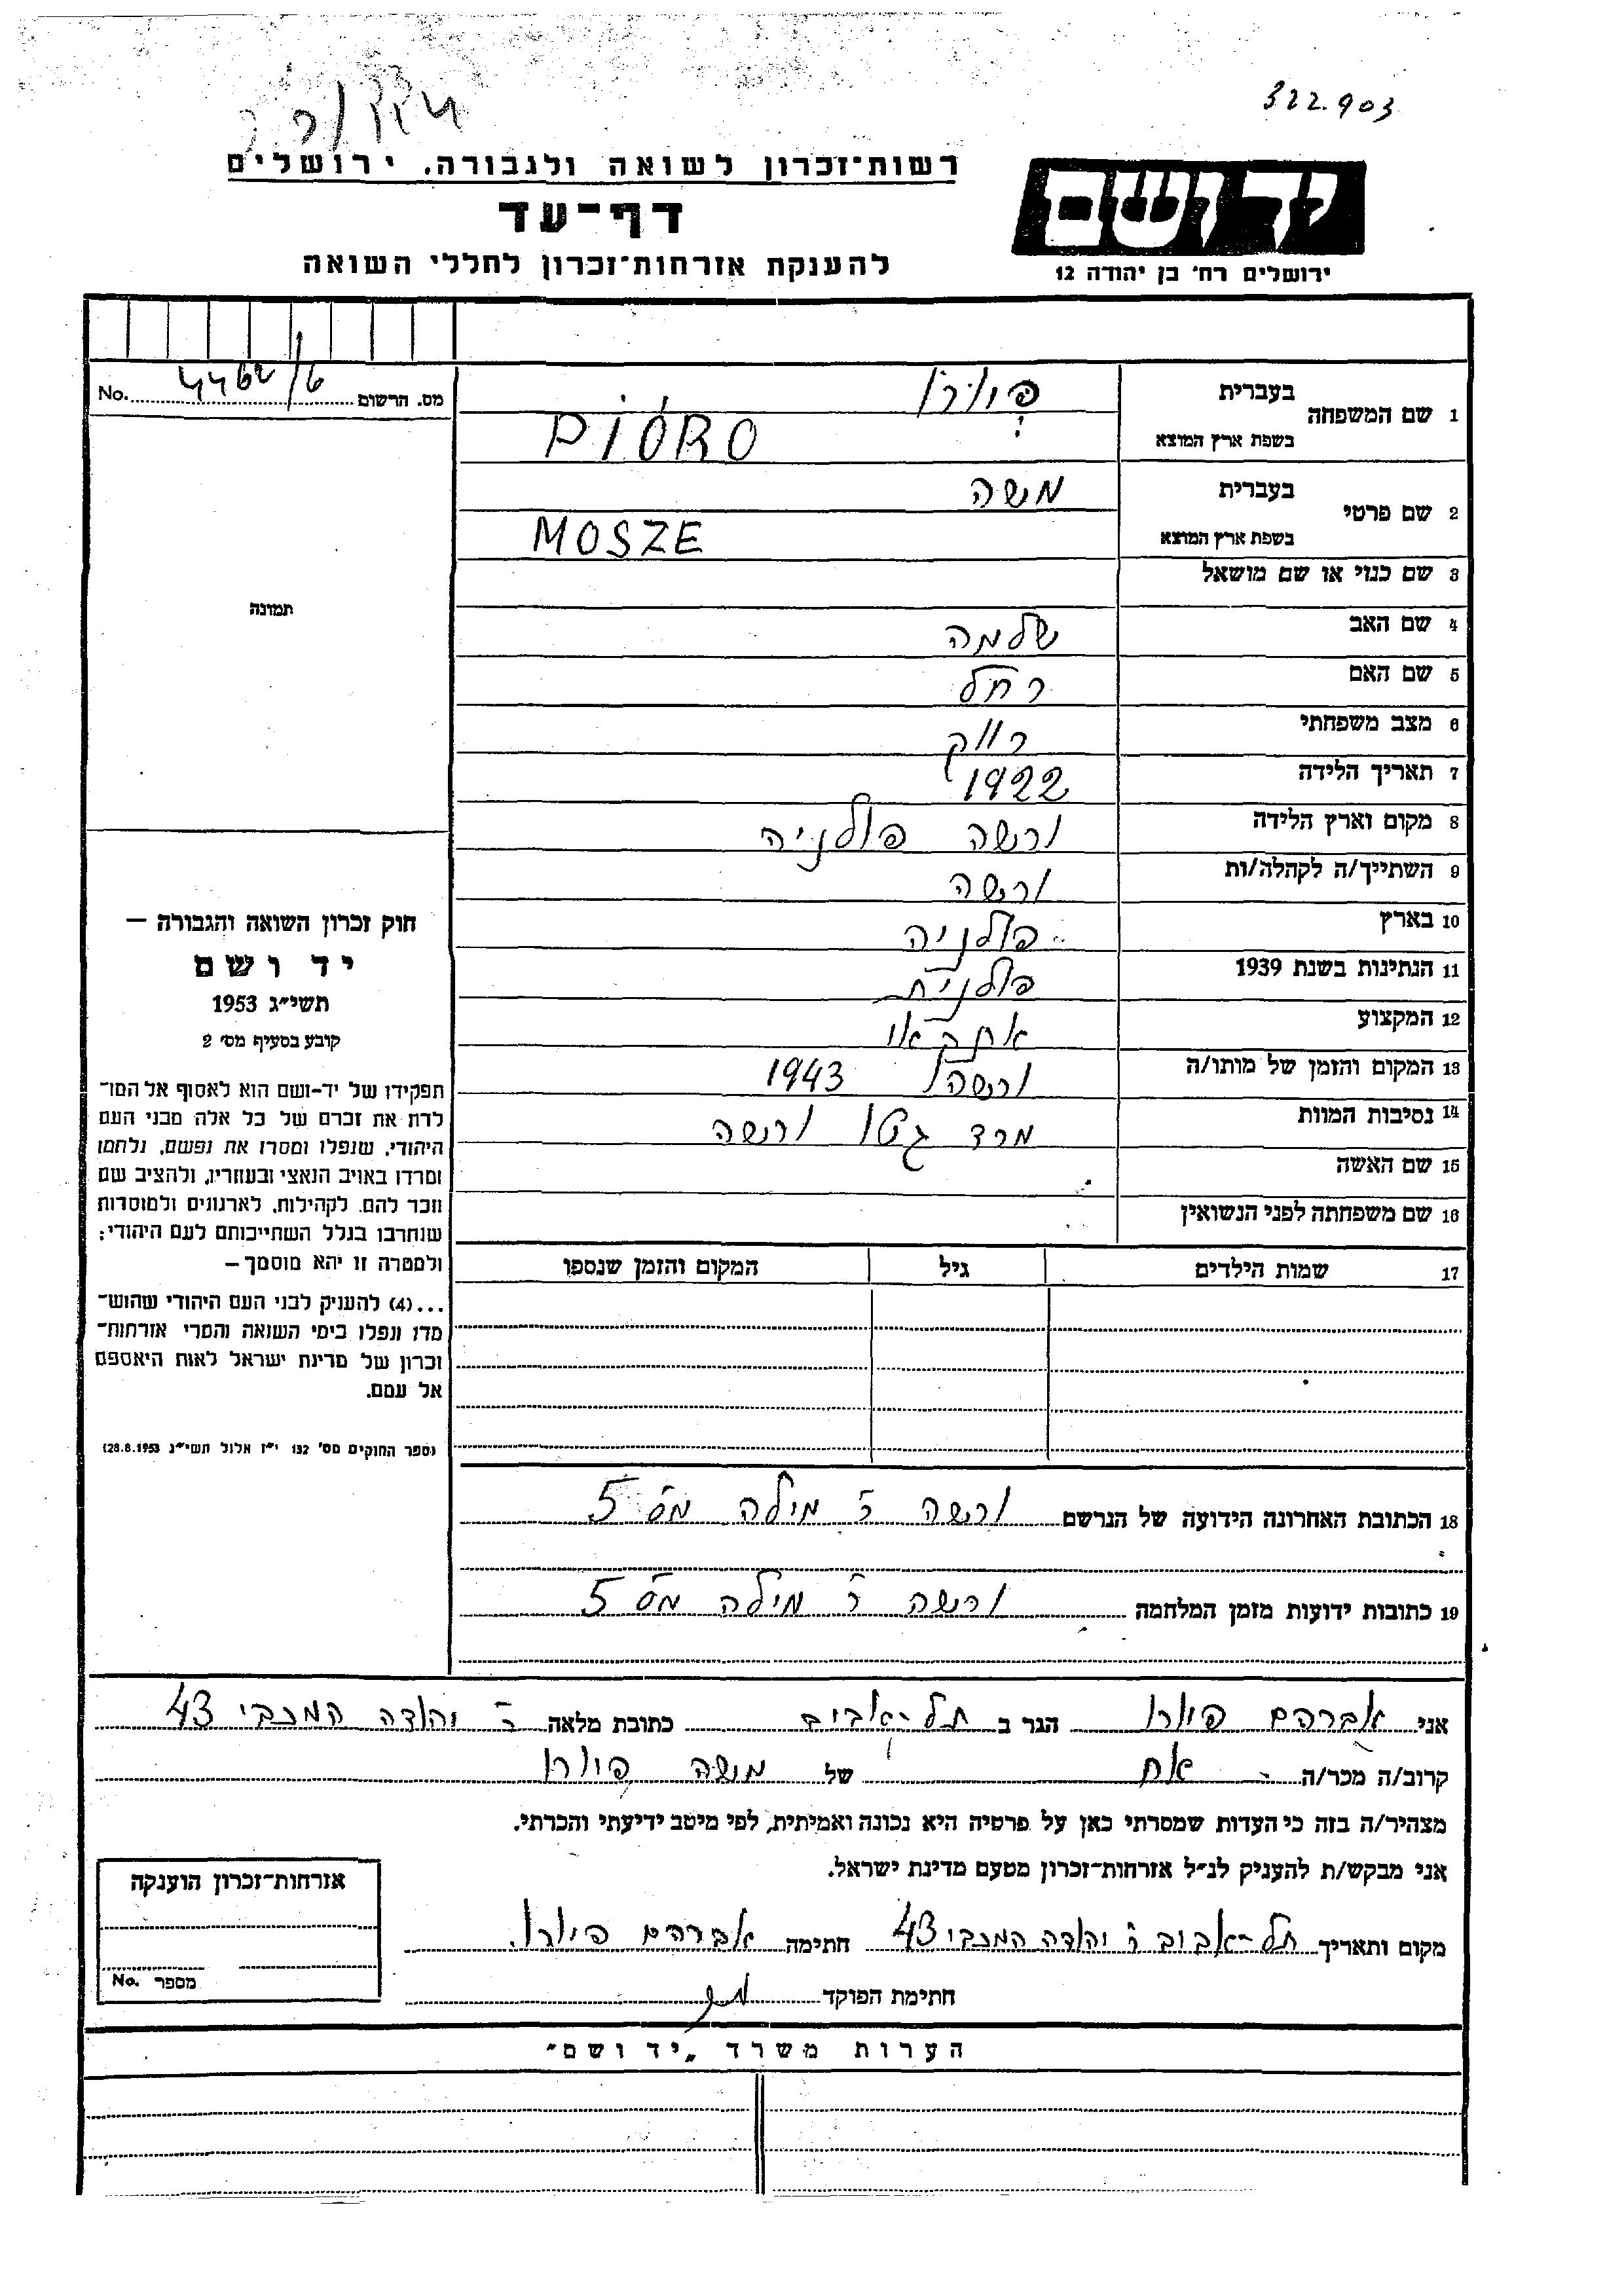 322.903
רשות־זכרון לשואה ולגבורה. ירושלים
דף־עד
להענקת אזרחות־זכרון לחללי השואה
יד ושם
ירושלים רח' בן יהודה 12
מס. הרשום 4462/6 No.
1 שם המשפחה
בעברית פיורו
בשפת ארץ המוצא PIÓRO
2 שם פרטי
בעברית משה
בשפת ארץ המוצא MOSZE
3 שם כנוי או שם מושאל
4 שם האב שלמה
5 שם האם רחל
6 מצב משפחתי רווק
7 תאריך הלידה 1922
8 מקום וארץ הלידה ורשה פולניה
9 השתייך/ה לקהלה/ות ורשה
10 בארץ פולניה
11 הנתינות בשנת 1939 פולנית
12 המקצוע
13 המקום והזמן של מותו/ה ורשה 1943
14 נסיבות המוות מרד גיטו ורשה
15 שם האשה
16 שם משפחתה לפני הנשואין
17 שמות הילדים גיל המקום והזמן שנספו
תמונה
חוק זכרון השואה והגבורה –
יד ושם
תשי״ג 1953
קובע בסעיף מס׳ 2
תפקידו של יד-ושם הוא לאסוף אל המו־
לדת את זכרם של כל אלה מבני העם
היהודי, שנפלו ומסרו את נפשם, נלחמו
ומרדו באויב הנאצי ובעוזריו, ולהציב שם
וזכר להם, לקהילות, לארגונים ולמוסדות
שנחרבו בגלל השתייכותם לעם היהודי;
ולמטרה זו יהא מוסמך –
...(4) להעניק לבני העם היהודי שהוש־
מדו ונפלו בימי השואה והמרי אזרחות־
זכרון של מדינת ישראל לאות היאספם
אל עמם.
(ספר החוקים מס' 132 י״ז אלול תשי״ג 28.8.1953)
18 הכתובת האחרונה הידועה של הנרשם ורשה ר' מילה מס' 5
19 כתובות ידועות מזמן המלחמה ורשה ר' מילה מס' 5
אני אברהם פיורו הגר ב תל-אביב כתובת מלאה ר' יהודה המכבי 43
קרוב/ה מכר/ה אח של משה פיורו
מצהיר/ה בזה כי העדות שמסרתי כאן על פרטיה היא נכונה ואמיתית, לפי מיטב ידיעתי והכרתי.
אני מבקש/ת להעניק לנ״ל אזרחות־זכרון מטעם מדינת ישראל.
מקום ותאריך תל-אביב ר' יהודה המכבי 43 חתימה אברהם פיורו.
חתימת הפוקד
אזרחות־זכרון הוענקה
מספר No.
הערות משרד „יד ושם״